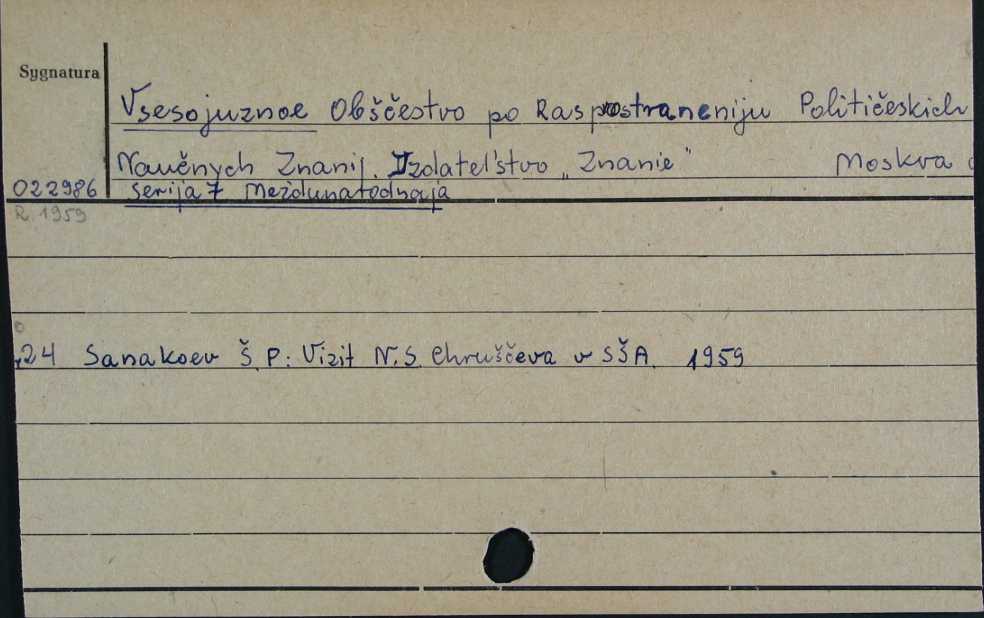 Sygnatura
Vsesojuznoe Obščestvo po Rasprostraneniju Političeskich
Naučnych Znanij. Izdatel'stvo „Znanie" Moskva
022986 serija 7 Meždunarodnaja
R. 1959
24 Sanakoev Š. P.: Vizit N.S. Chruščeva v SŠA. 1959